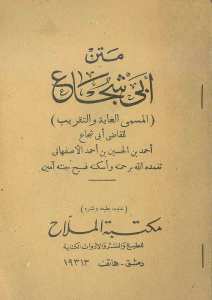 متن
أبي شجاع
( المسمى الغاية والتقريب )
للقاضي أبي شجاع
أحمد بن الحسين بن أحمد الأصفهاني
تغمده الله برحمته وأسكنه فسيح جنته آمين
مكتبة الملاح
للطبع والنشر والأدوات الكتابية
دمشق - هاتف ١٩٣١٣